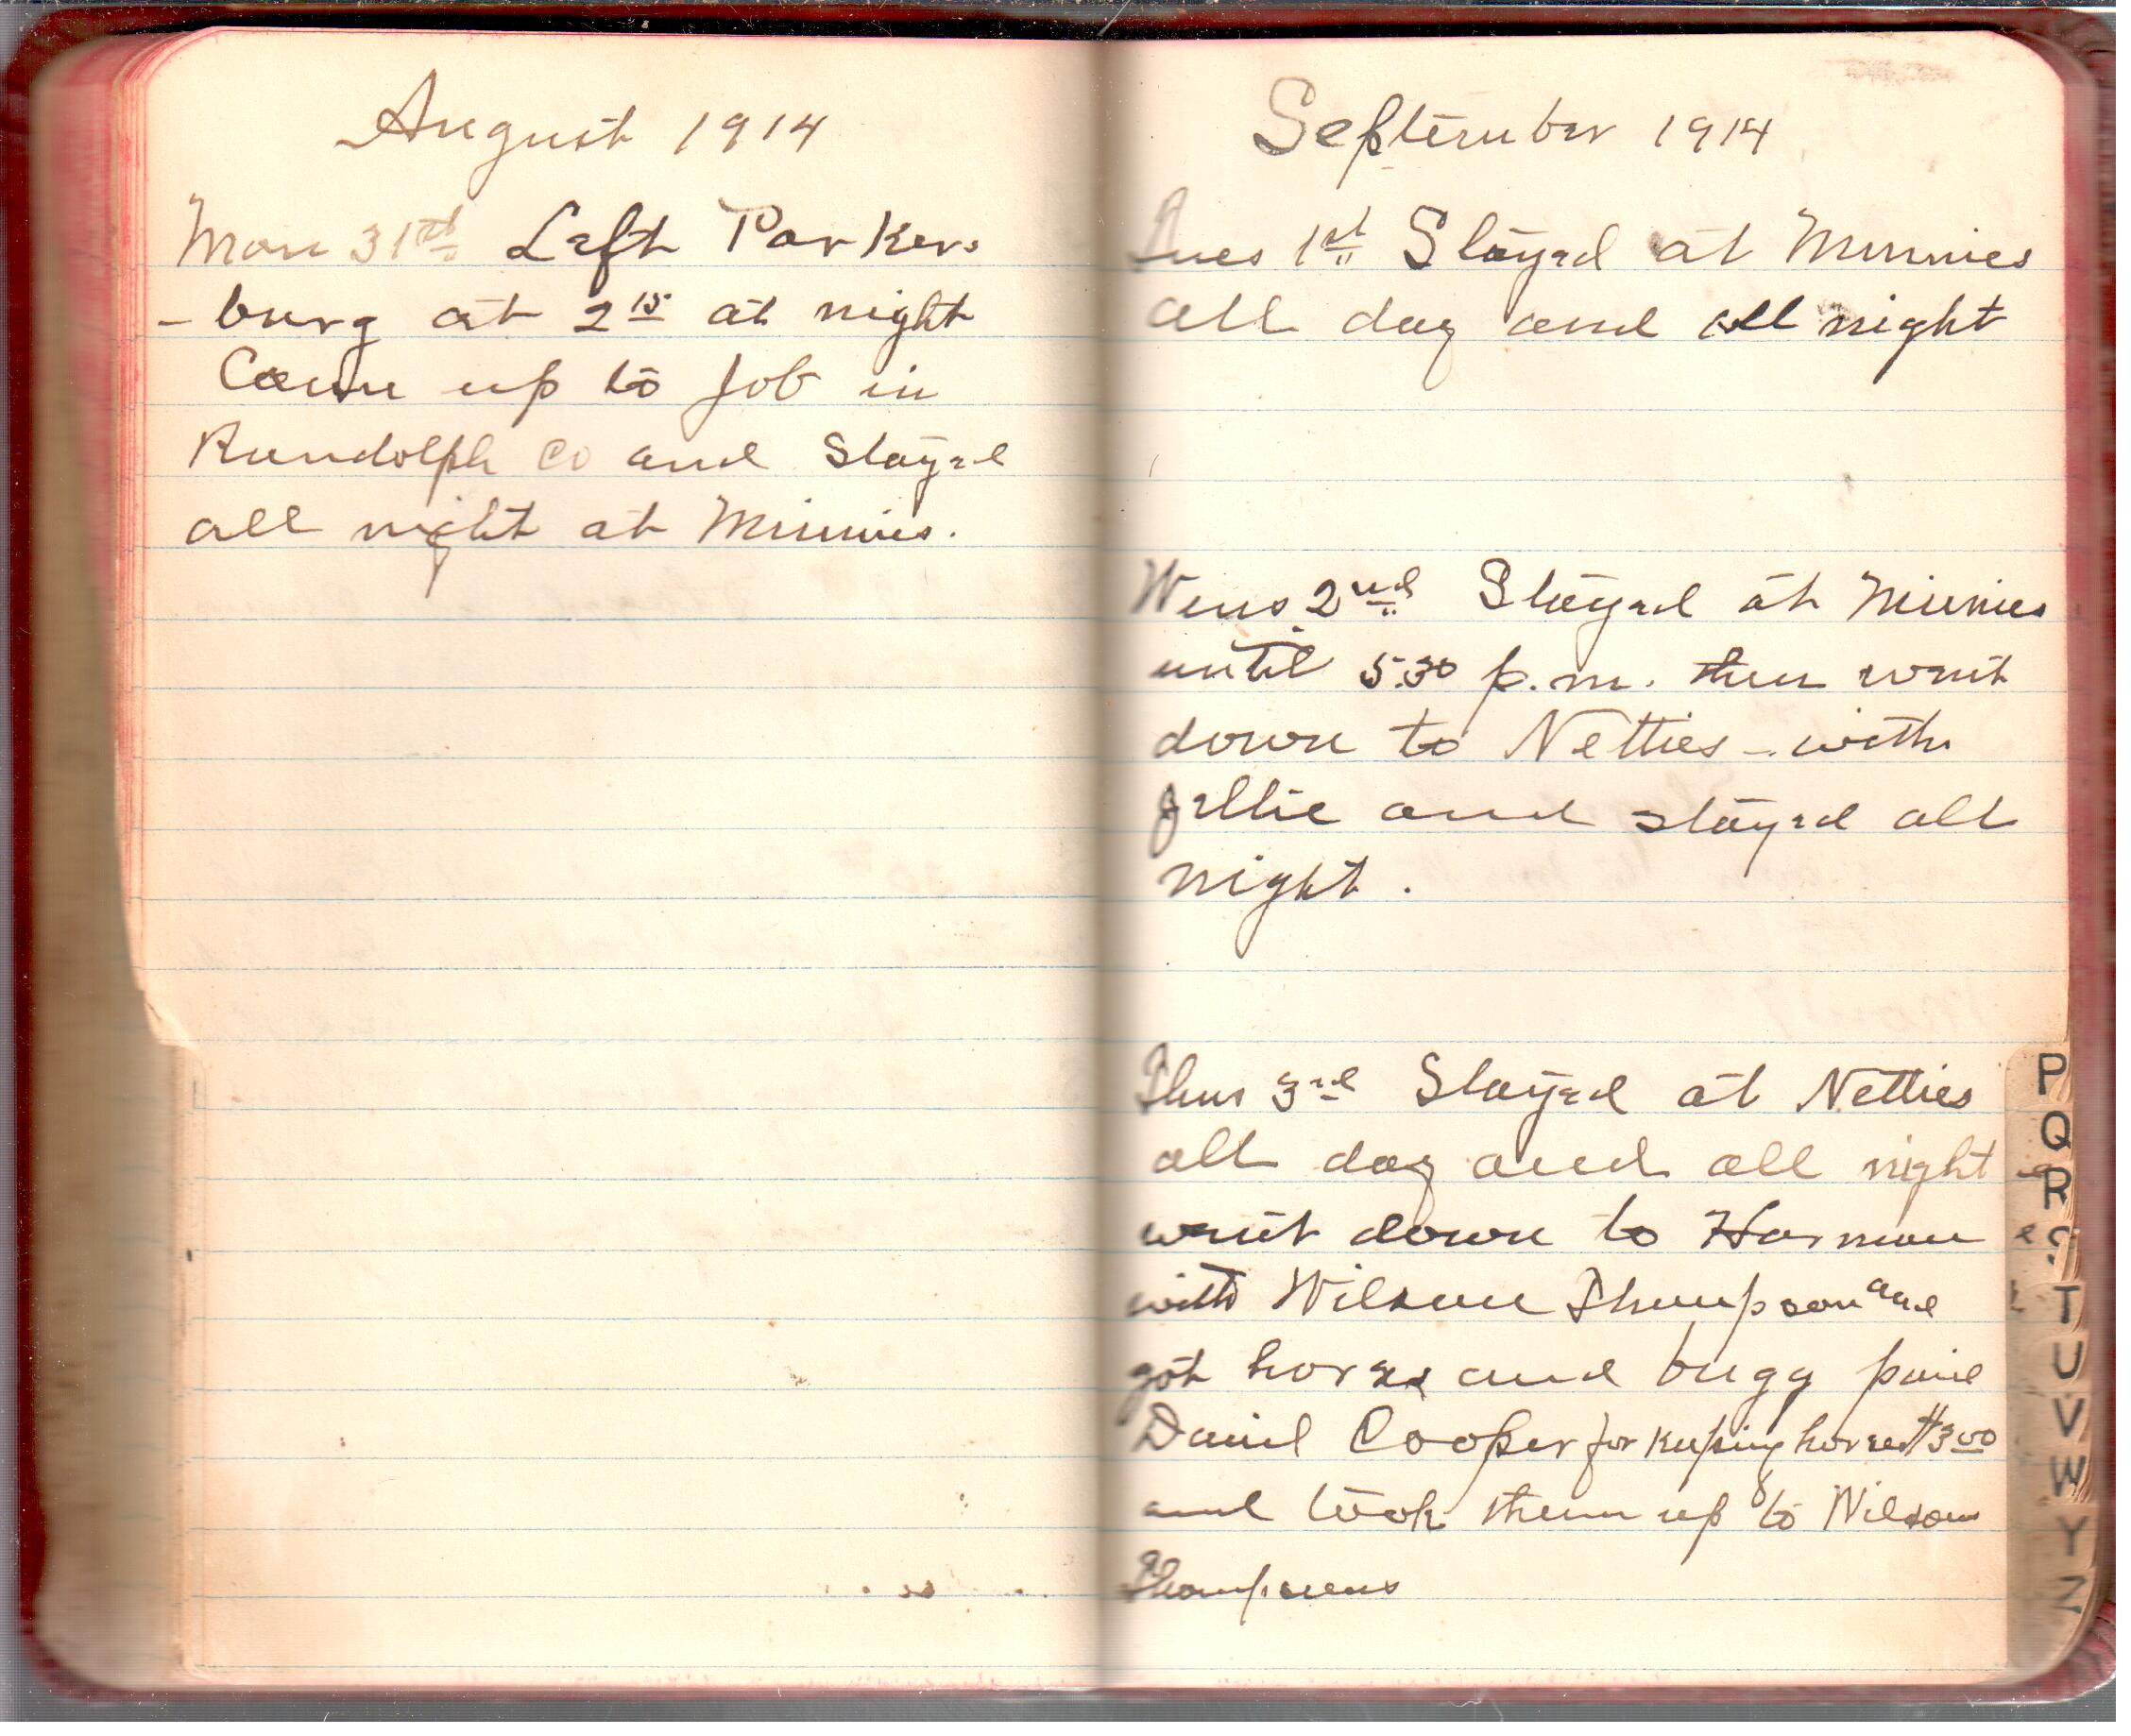 August 1914
Mon 31st Left Parkers
-burg at 2 15 at night
Came up to Job in
Randolph Co and Stayed
all night at Minnies.
September 1914
Tues 1st Stayed at Minnies
all day and all night
Wens 2nd Stayed at Minnies
until 5.30 p.m. then went
down to Netties - with
and stayed all
night.
Thur 3rd Stayed at Netties
all day and all night
went down to Harman
with Wilson Thompson and
got horses and bugg paid
Daniel Cooper for keeping horses $3 00
and took them up to Wilson
Thompsons
P
Q
R
S
T
U
V
W
Y
Z